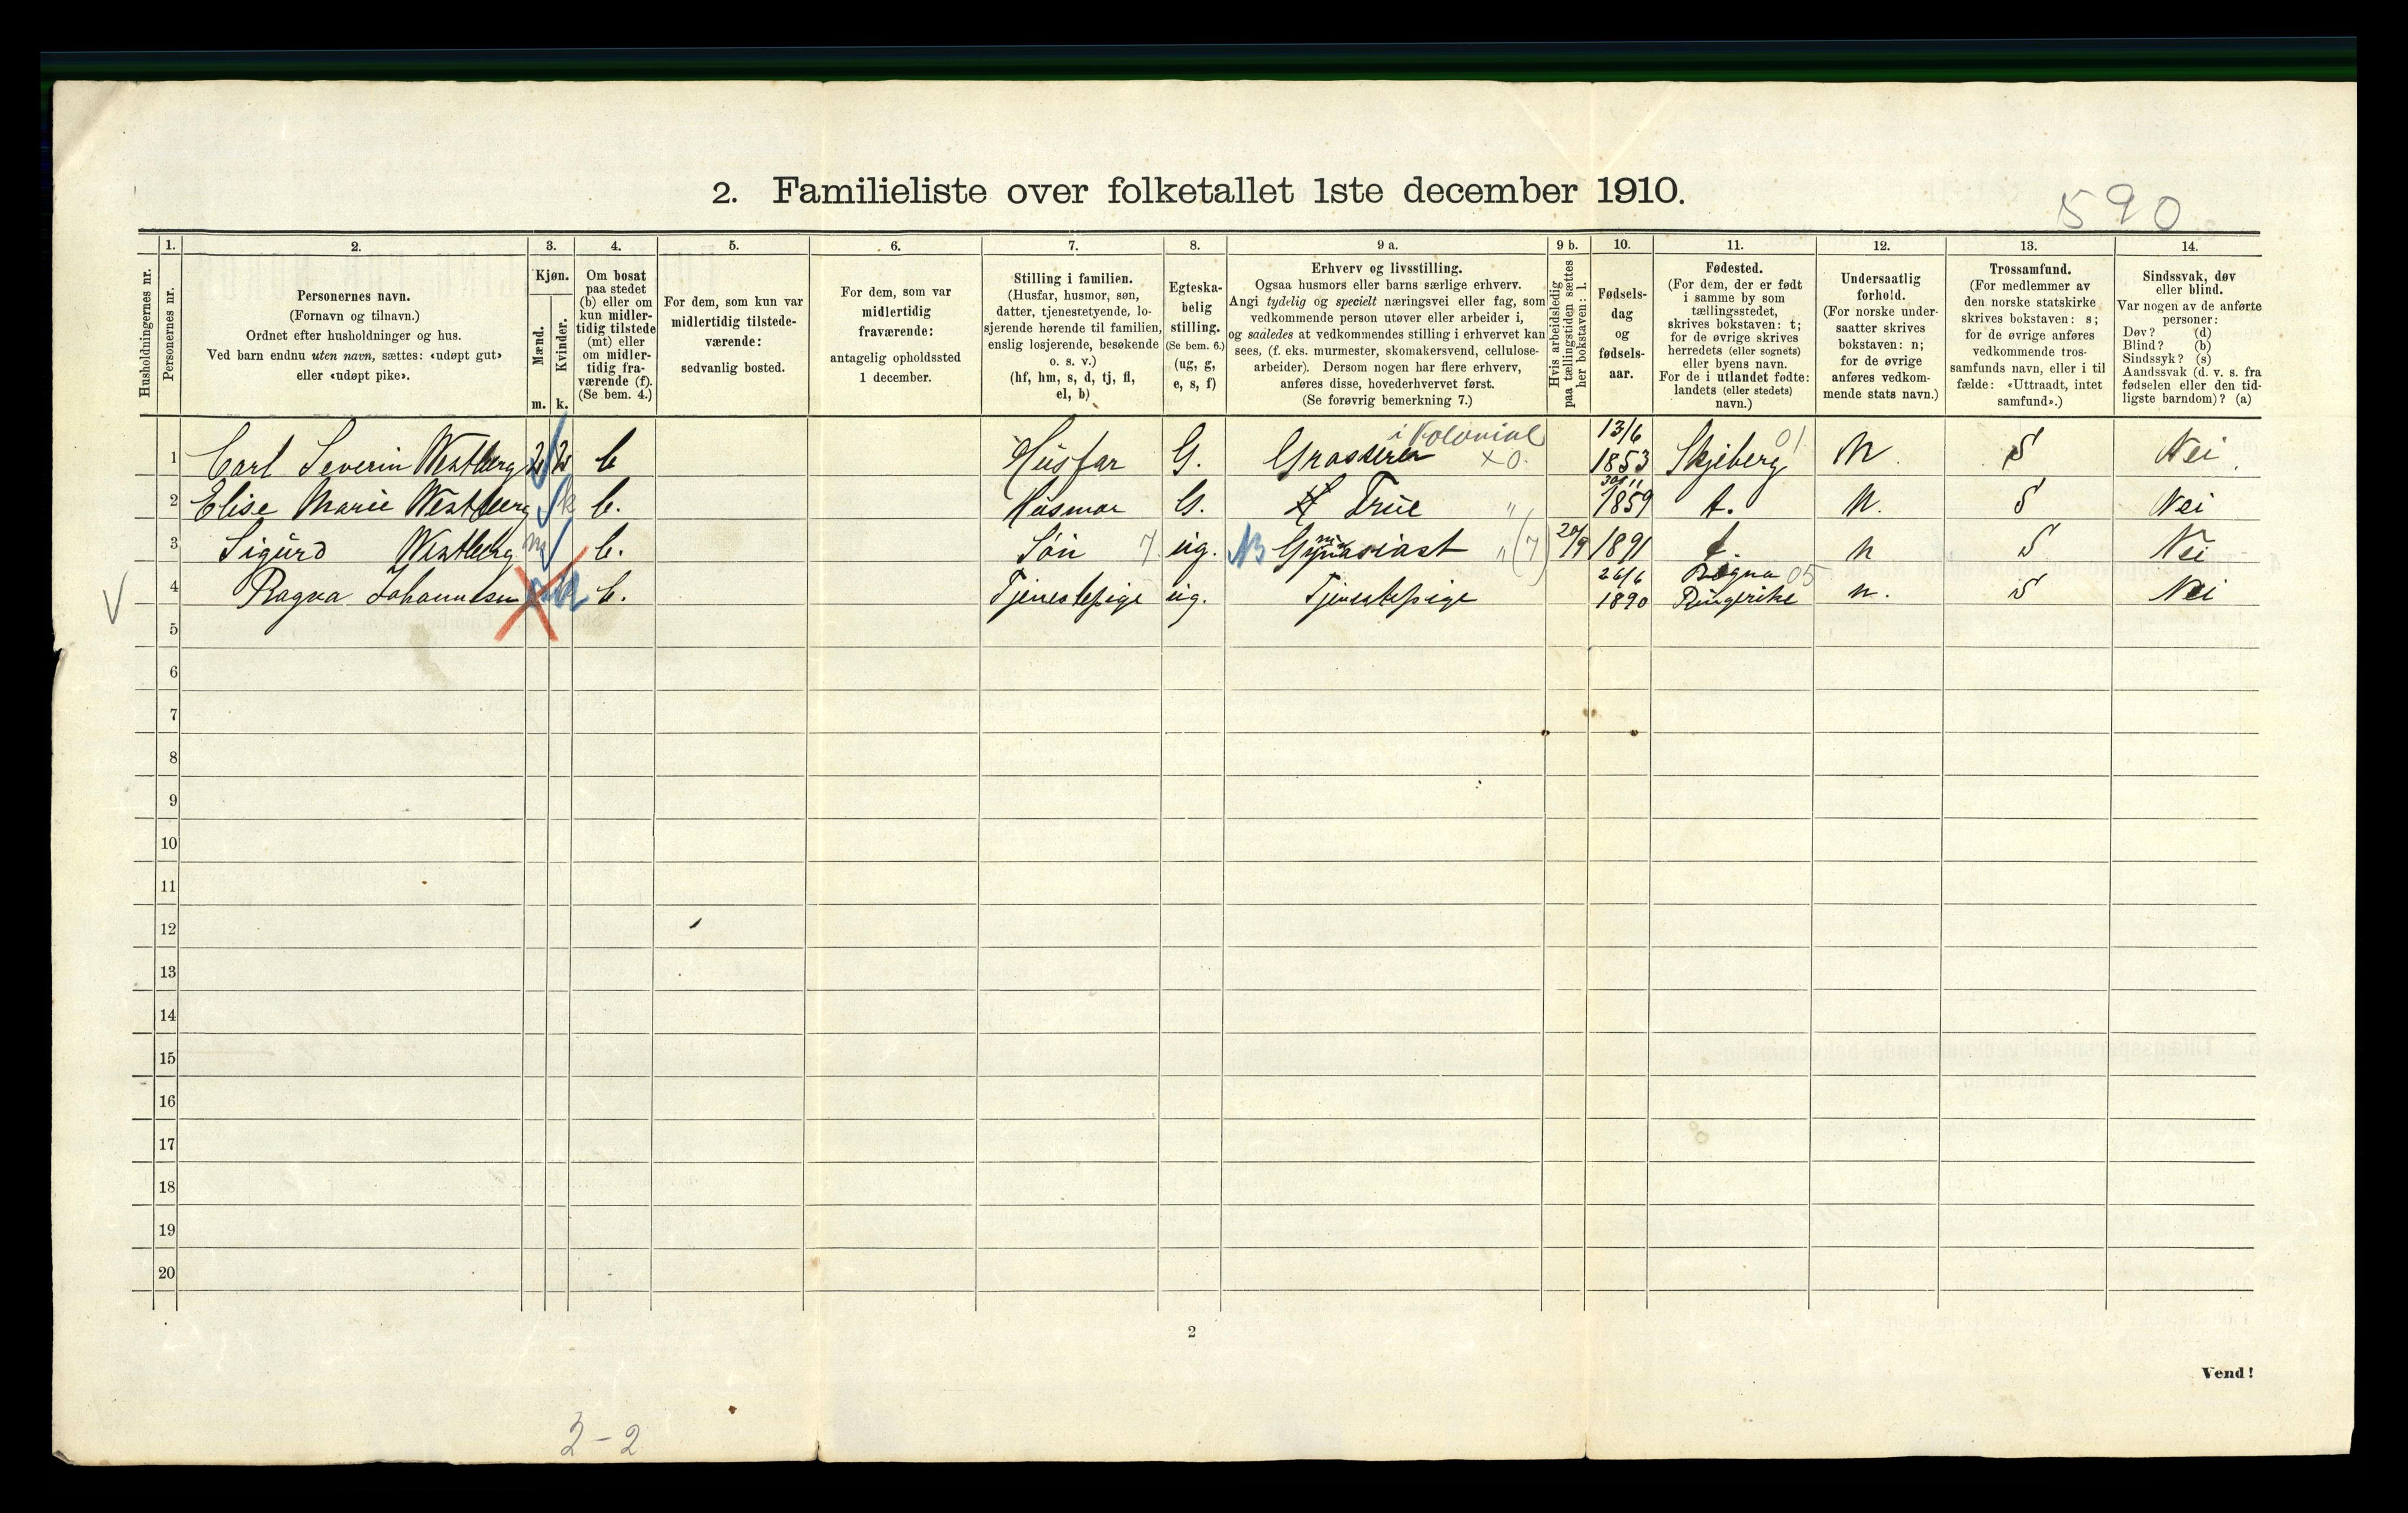 2. Familieliste over folketallet 1ste december 1910.
590
1. 2. 3. 4. 5. 6. 7. 8. 9 a. 9 b. 10. 11. 12. 13. 14.
Husholdningernes nr.
Personernes nr.
Personernes navn.
(Fornavn og tilnavn.)
Ordnet efter husholdninger og hus.
Ved barn endnu uten navn, sættes: «udøpt gut»
eller «udøpt pike».
Kjøn.
Mænd.
Kvinder.
m. k.
Om bosat
paa stedet
(b) eller om
kun midler-
tidig tilstede
(mt) eller
om midler-
tidig fra-
værende (f).
(Se bem. 4.)
For dem, som kun var
midlertidig tilstede-
værende:
sedvanlig bosted.
For dem, som var
midlertidig
fraværende:
antagelig opholdssted
1 december.
Stilling i familien.
(Husfar, husmor, søn,
datter, tjenestetyende, lo-
sjerende hørende til familien,
enslig losjerende, besøkende
o. s. v.)
(hf, hm, s, d, tj, fl,
el, b)
Egteska-
belig
stilling.
(Se bem. 6.)
(ug, g,
e, s, f)
Erhverv og livsstilling.
Ogsaa husmors eller barns særlige erhverv.
Angi tydelig og specielt næringsvei eller fag, som
vedkommende person utøver eller arbeider i,
og saaledes at vedkommendes stilling i erhvervet kan
sees, (f. eks. murmester, skomakersvend, cellulose-
arbeider). Dersom nogen har flere erhverv,
anføres disse, hovederhvervet først.
(Se forøvrig bemerkning 7.)
Hvis arbeidsledig
paa tællingstiden sættes
her bokstaven: l.
Fødsels-
dag
og
fødsels-
aar.
Fødested.
(For dem, der er født
i samme by som
tællingsstedet,
skrives bokstaven: t;
for de øvrige skrives
herredets (eller sognets)
eller byens navn.
For de i utlandet fødte:
landets (eller stedets)
navn.)
Undersaatlig
forhold.
(For norske under-
saatter skrives
bokstaven: n;
for de øvrige
anføres vedkom-
mende stats navn.)
Trossamfund.
(For medlemmer av
den norske statskirke
skrives bokstaven: s;
for de øvrige anføres
vedkommende tros-
samfunds navn, eller i til
fælde: «Uttraadt, intet
samfund».)
Sindssvak, døv
eller blind.
Var nogen av de anførte
personer:
Døv? (d)
Blind? (b)
Sindssyk? (s)
Aandssvak (d. v. s. fra
fødselen eller den tid-
ligste barndom)? (a)
i Kolonial 13/6 01
1 Carl Severin Westberg b Husfar G. Grosserer x0. 1853 Skjeberg N. S Nei
30/11
2 Elise Marie Westberg k b. Husmor G. Frue " 1859 t. N. S Nei
3 Sigurd Westberg m b. Sön 7 ug. NB Gymnasiast " (7) 20/9 1891 t. n S Nei
26/6 Rogna 05
4 Ragna Johannesen k b. Tjenestepige ug. Tjenestepige 1890 Ringerike n. S Nei
5
6
7
8
9
10
11
12
13
14
15
16
17
18
19
20
2
Vend!
2-2